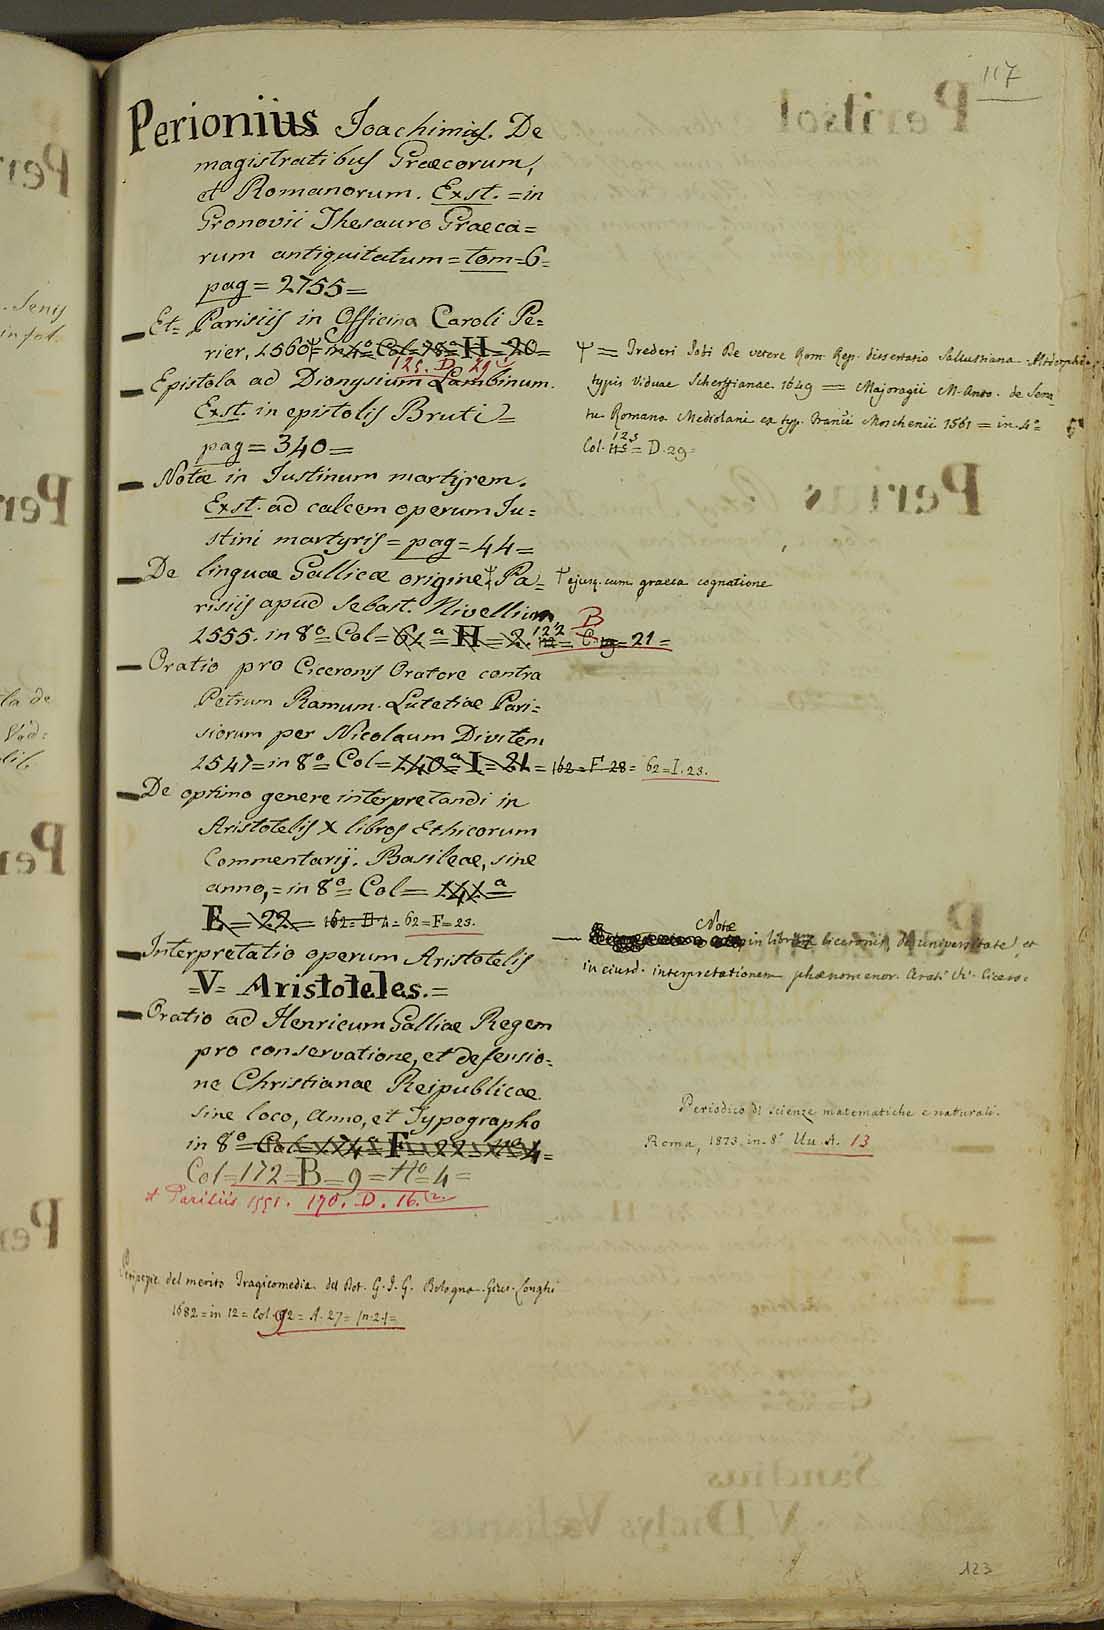 117
Perioniius Joachimus. De
magistratibus Graecorum,
et Romanorum. Exst. = in
Gronovii Thesauro Graeca=
rum antiquitatum = tom = 6=
pag = 2755=
Et= Parisiis in Officina Caroli Pe=
rier, 1560 Ψ = in 4º Col = 78ª H = 20=
125. D. 29
Epistola ad Dionysium Lambinum.
Exst. in epistolis Bruti =
pag = 340 =
Notae in Justinum martyrem.
Exst. ad calcem operum Ju=
stini martyris = pag = 44 =
De linguae Gallicae origine Ψ Pa=
risiis apud Sebast. Nivellium
1555. in 8º = Col = 61ª = H = 2. 122 B = 21 =
Oratio pro Ciceronis Oratore contra
Petrum Ramum. Lutetiae Pari=
siorum per Nicolaum Divitem
1547 = in 8º = Col = 140ª = I = 21 = 162 = F 28 = 62 = I. 23.
De optimo genere interpretandi in
Aristotelis X libros Ethicorum
Commentarij. Basileae, sine
anno, = in 8º = Col = 141ª =
E = 22 = 162 = H 4 = 62 = F = 23.
Interpretatio operum Aristotelis
=V= Aristoteles. =
Oratio ad Henricum Galliae Regem
pro conservatione, et defensio=
ne Christianae Reipublicae.
sine loco, anno, et Typographo
in 8º = Col = 174ª F = 22 = Nº 4 =
Col = 172 = B = 9 = Nº = 4 =
et Parisiis 1551. 170. D. 16.
Peripezie del merito Tragicomedia del Dot. G. I. G. Bologna. Gius. Longhi
1682 = in 12 = Col. 92 = A. 27 = In. 21 =
Ψ = Trederi Jobi De vetere Rom. Rep. dissertatio Sallustiana. Altdorphi
typis Viduae Scherffianae. 1649 = Majoragii M. Anto. de Sena=
tu Romano Mediolani ex typ. Francii Moschenii 1561 = in 4º =
Col. 125 = D. 29=
Ψ ejusq. cum graeca cognatione
— Notae in libr Ciceronis, De universitate, et
in eiusd. interpretationem phaenomenor. Arati
Periodico di scienze matematiche e naturali.
Roma, 1873, in-8º Uu. A. 13
123